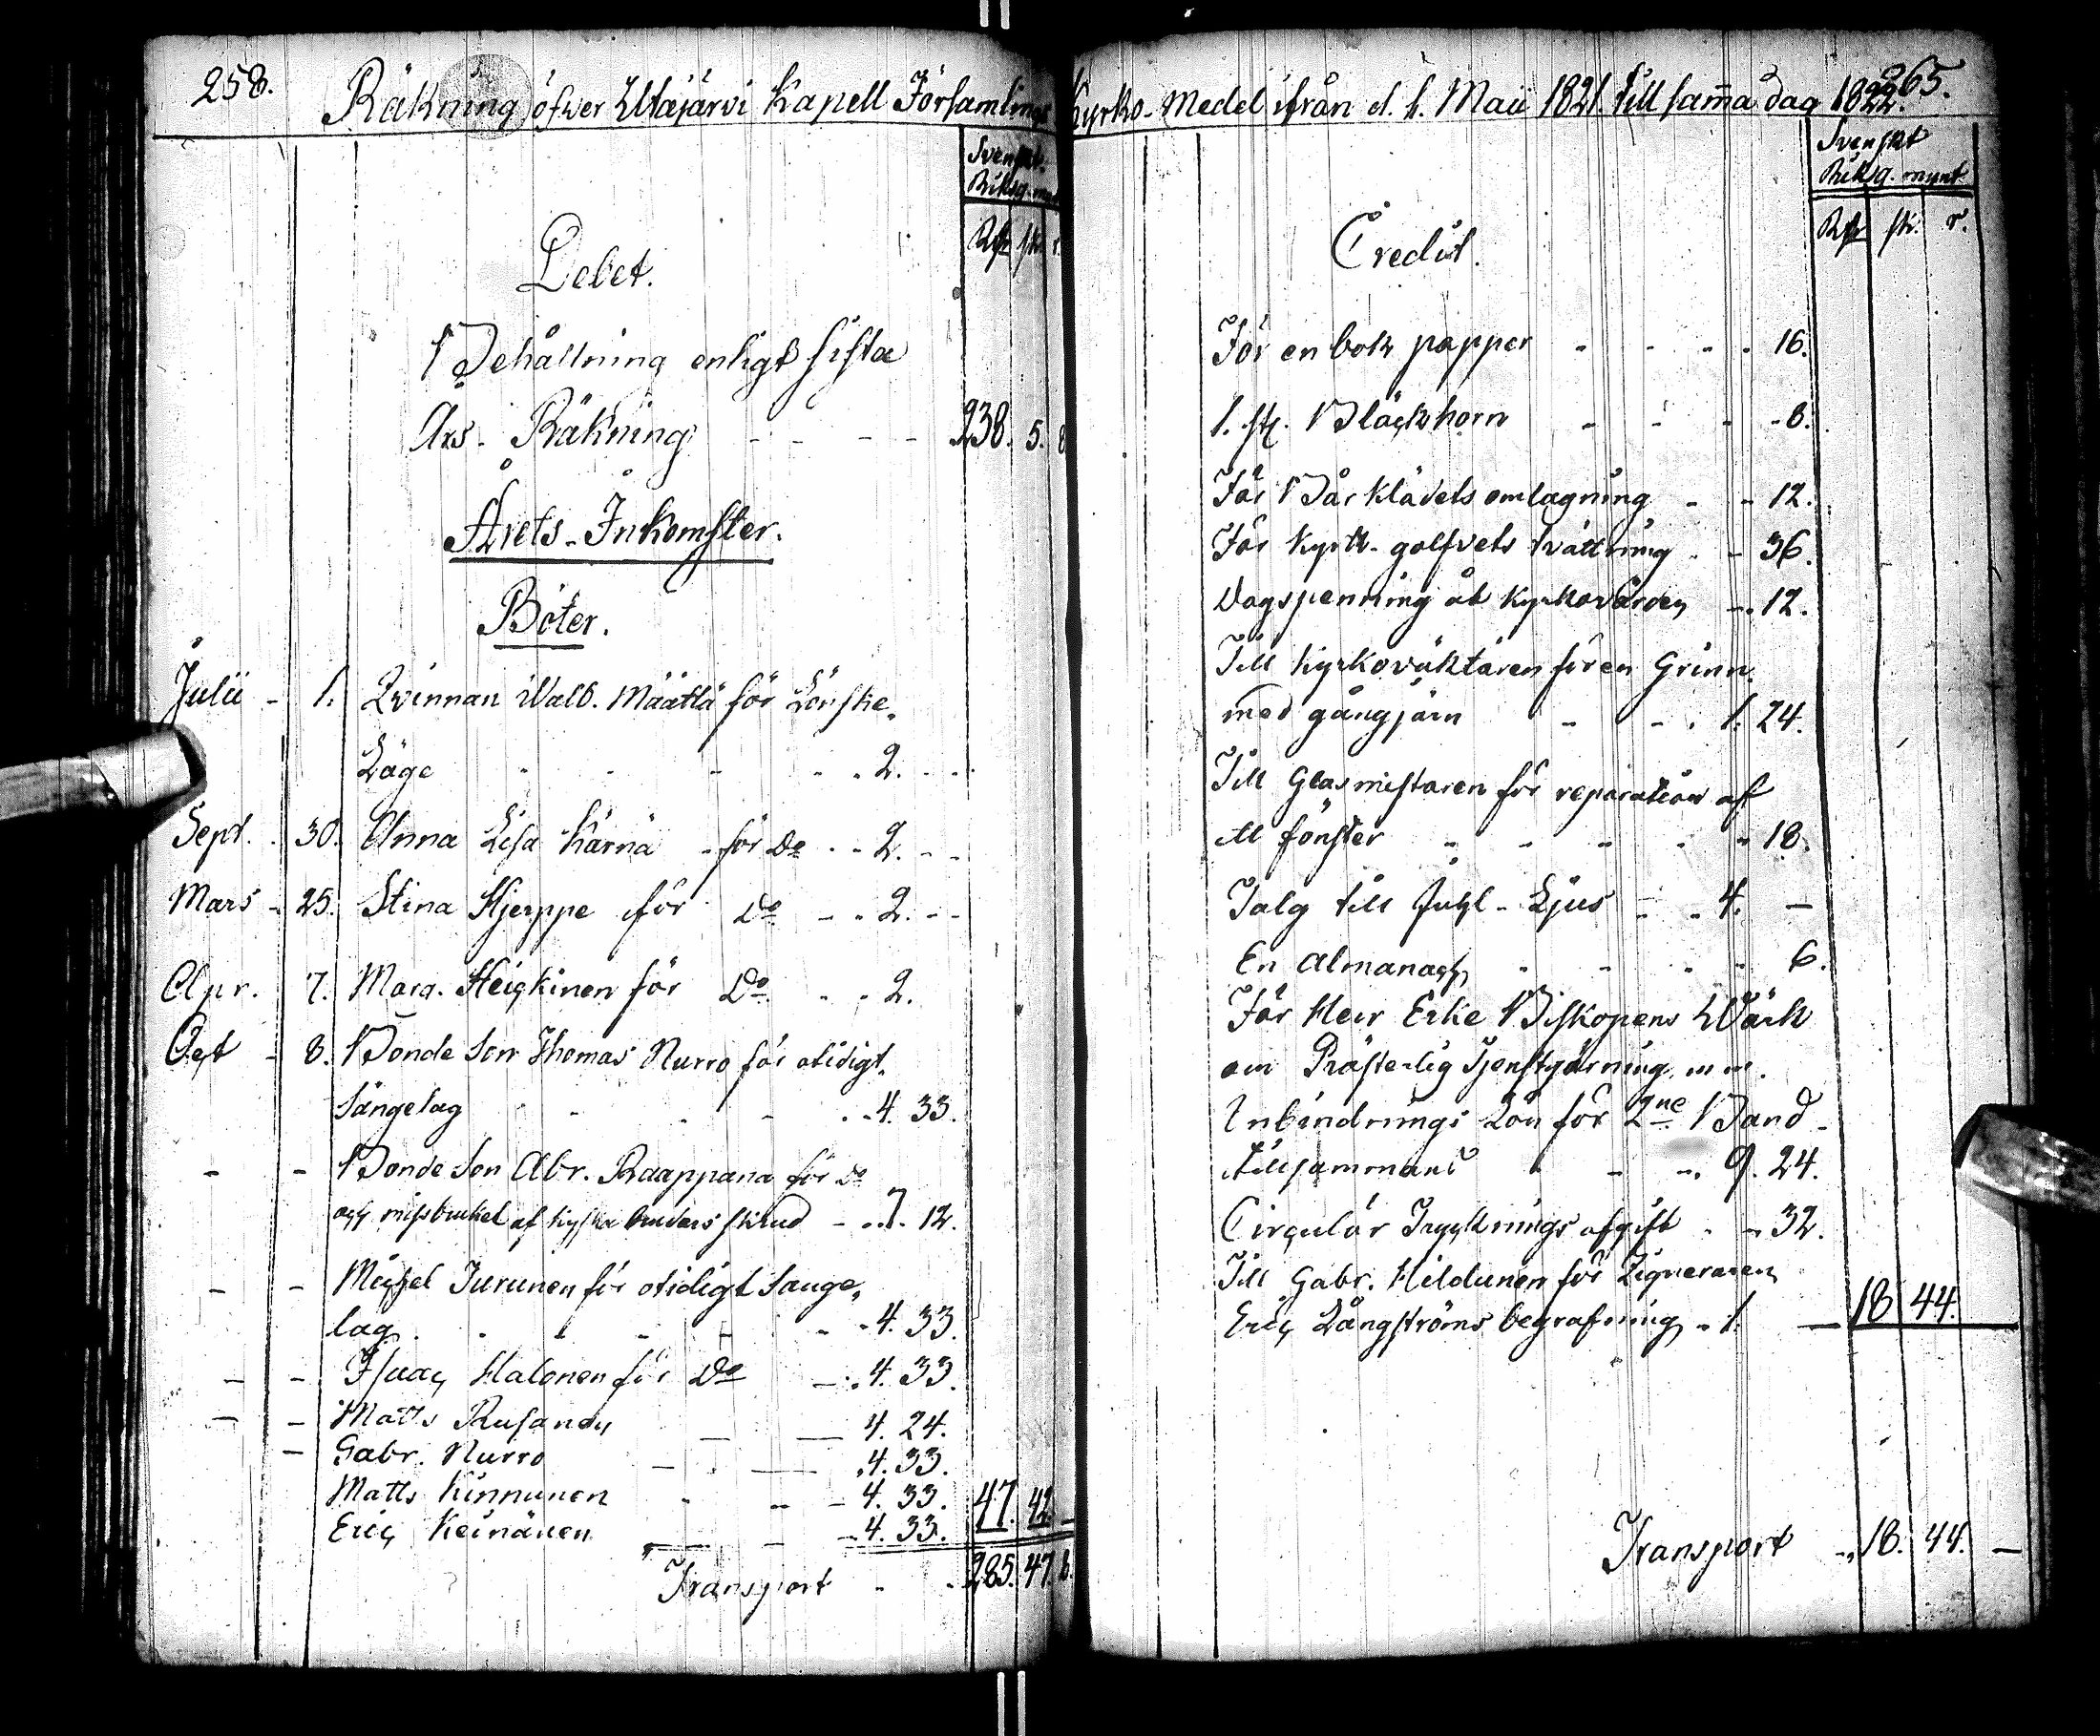 258.
Räkning öfwer Utajärvi Kapell Församlings
Svenskt
Riksg. mynt
Rdr sk. r.
Debet.
Behållning enligt sista
Års- Räkning - - - - 238. 5. 8
Årets-Inkomster.
Böter.
Julii - 1. Qvinnan Walb. Määttä för Lönske-
Läge - - - - 2. - -
Sept. - 30. Anna Lisa Kärnä - för Do - - 2. - -
Mars - 25. Stina Hjerppe för Do - - 2. - -
Apr. 7. Marg. Heickinen för Do - - 2.
Oct - 8. Bonde Son Thomas Nurro för otidigt
Sängelag - - - - 4. 33.
- - Bonde Son Abr. Raappana för Do
och missbruket af kyska bruders skrud - - 7. 12.
- - Michel Jurunen för otidigt Sänge-
lag. - - - - - 4. 33.
- - Isaac Halonen för Do - - 4. 33.
- - Matts Rusanen — — 4. 24.
- Gabr. Nurro — — 4. 33.
Matts Kinnunen - - - 4. 33. 47. 42. -
Eric Keinänen — - - 4. 33.
Transport - - 285. 47. 8.
265.
Kyrko-Medel ifrån d. 1. Maii 1821. till samma dag 1822.
Svenskt
Riksg. mynt.
Rdr sk. r.
Credit.
För en bok papper - - - - 16.
1. st. Bläckhorn - - - - 8.
För Bår klädets omlagning - - 12.
För Kyrk-golfvets tvättning - - 36.
Dagspenning åt Kyrkovärden - - 12.
Till Kyrkoväktaren för en Grinn
med gångjärn - - - 1. 24.
Till Glasmästaren för reparation af
ett fönster - - - - - 18.
Talg till Juhl-Ljus - - 4. —
En Almanach - - - - 6.
För Herr Erke Biskopens Wärk
om Prästerlig Tjenstgörning m m.
Inbindnings Lön för 2ne Band -
tillsammans - - - 9. 24.
Circulär Trycknings afgift - - 32.
Till Gabr. Hildunen för Ligueraren
Eric Långströms begrafning - 1. — 18 44.
Transport - 18. 44. —